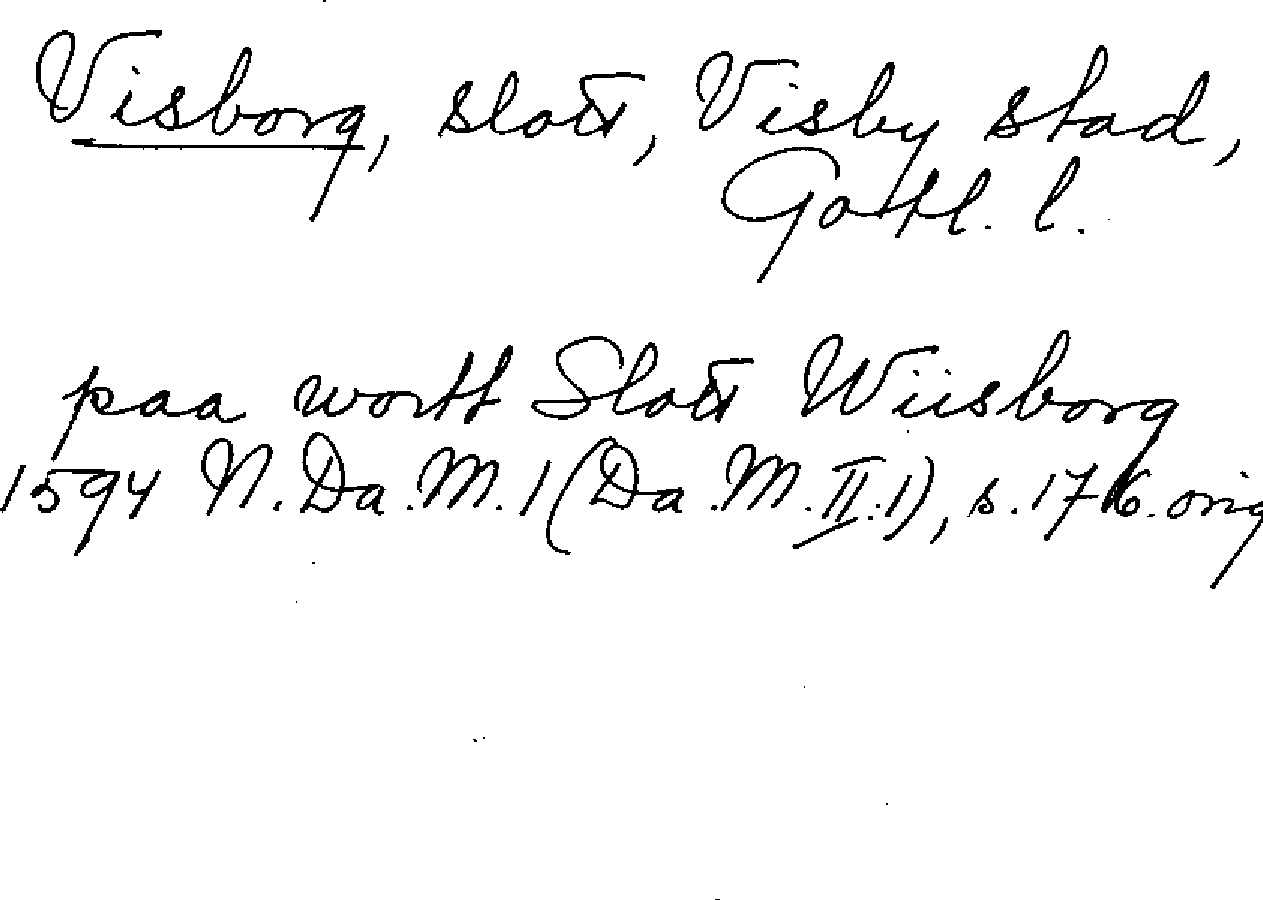 Visborg, slott, Visby stad,
Gotl. l.
paa wortt Slott Wiisborg
1594 N. Da. M. 1 (Da. M. II:1), s. 176. orig